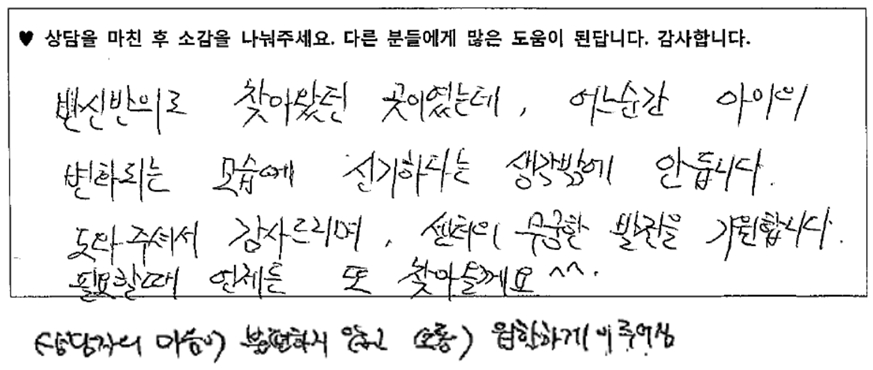 ♥ 상담을 마친 후 소감을 나눠주세요. 다른 분들에게 많은 도움이 된답니다. 감사합니다.
반신반의로 찾아왔던 곳이였는데, 어느순간 아이의
변화되는 모습에 신기하다는 생각밖에 안듭니다.
도와주셔서 감사드리며, 센터의 무궁한 발전을 기원합니다.
필요할때 언제든 또 찾아올께요 ^^.
(상담자의 마음이) 불편하지 않고 (소통) 원활하게 이루어짐